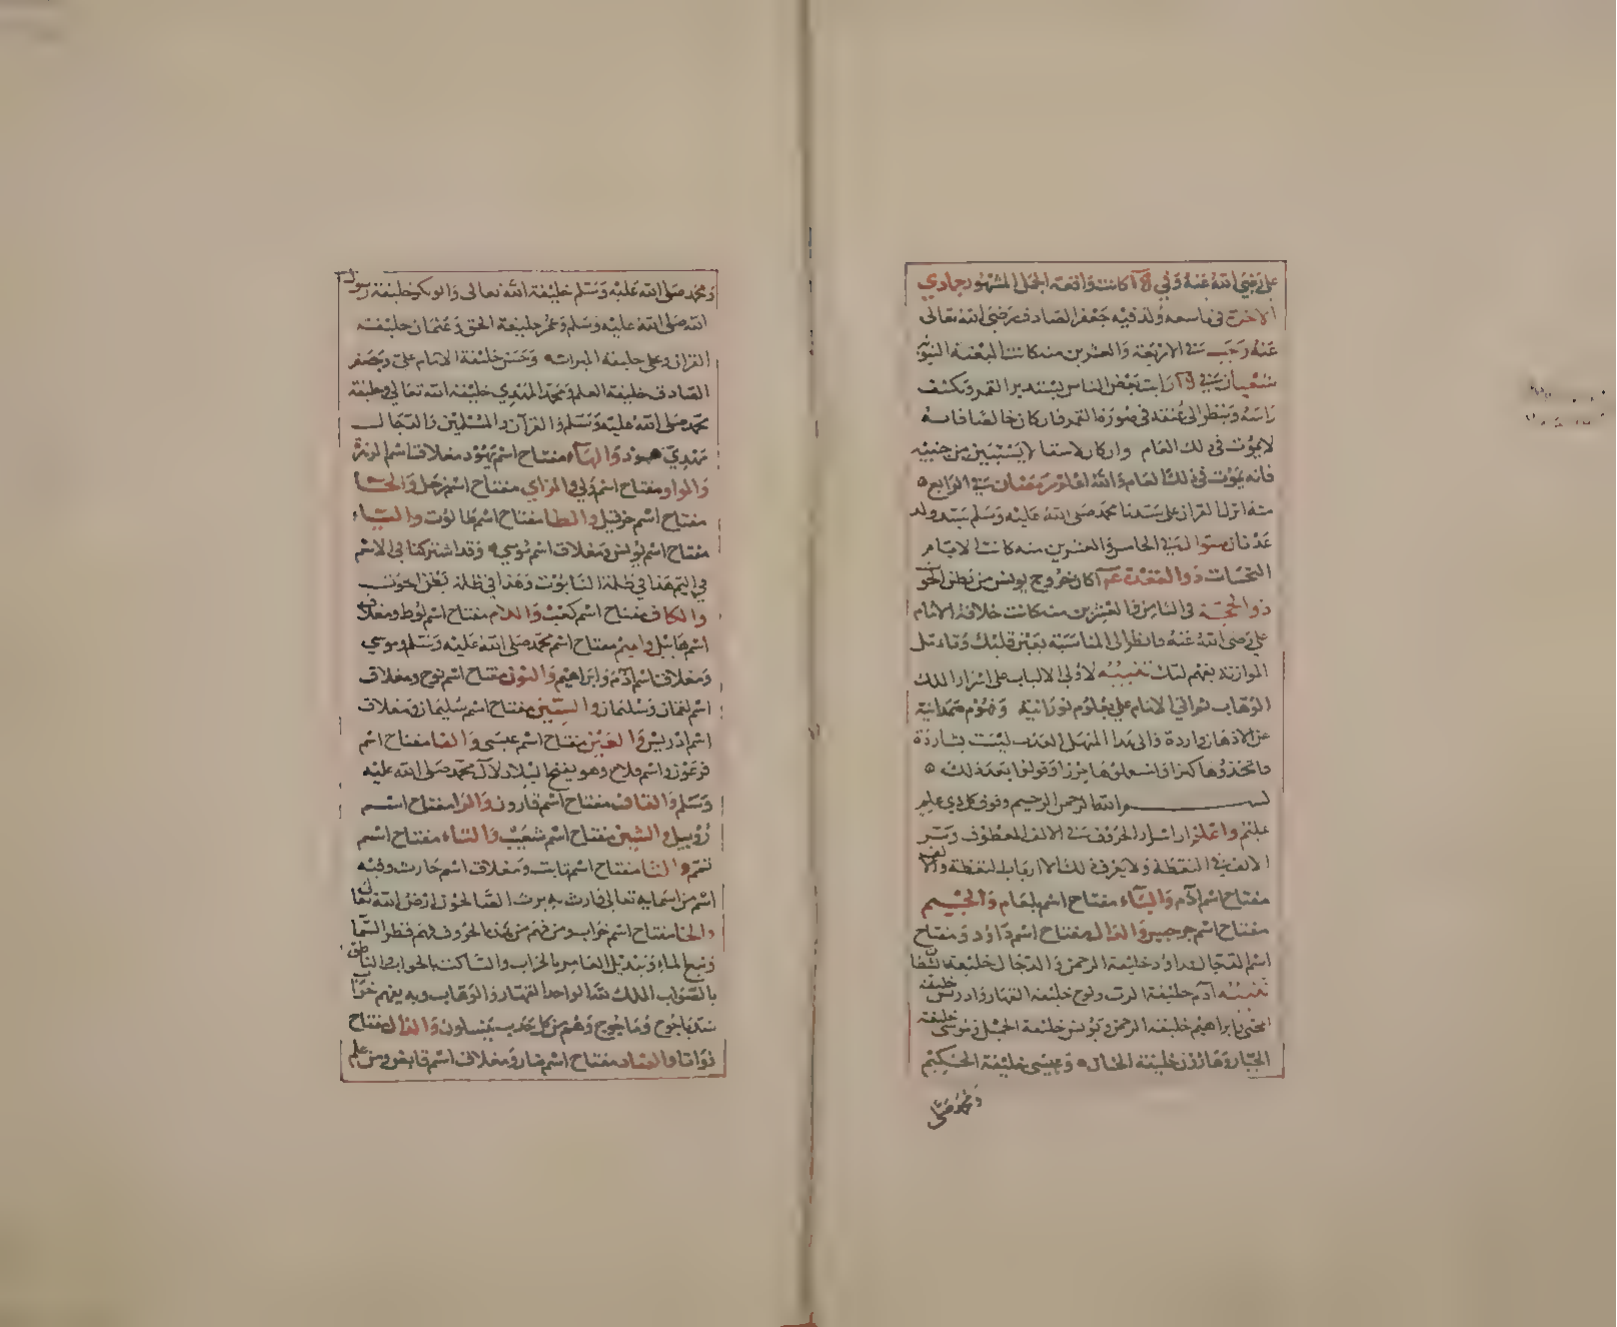 علي رضي الله عنه وفي كانت واقعة الجمل المشهور جمادي
الاخرى في تاسعه ولد فيه جعفر الصادق رضي الله تعالى
عنه رجب في الاربعة والعشرين منه كانت البعثة النبوية
شعبان في رايت بعض الناس يستدبر القمر ويكشف
راسه وينظر الى عنقه في صورة القمر فان كان خالصا فانه
لا يموت في ذلك العام وان كان لاسقا من جنبيه
فانه يموت في ذلك العام والله اعلم رمضان في الرابع
منه انزل القران على سيدنا محمد صلى الله عليه وسلم سيد ولد
عدنان شوال في الخامس والعشرين منه كانت الايام
النحسات ذوا القعدة كان خروج يونس من بطن الحوت
ذو الحجة في الثامن والعشرين منه كانت خلافة الامام
علي رضي الله عنه فانظر الى المناسبة بعين قلبك وتامل
الموازنة يفهم لبك تنبيه لاولي الالباب على اسرار الملك
الوهاب توالي الانام على بعلوم نورانية وصوم صمدانية
عن الاذهان واردة والى هذا المنهل العذب ليست بشاردة
فاتخذوها كنزا واجعلوها حرزا وقولوا بعد ذلك
بسم الله الرحمن الرحيم وفوق كل ذي علم
عليم واعلم ان اسرار الحروف في الالف المعطوف وسر
الالف في النقطة ولا يعرف ذلك الا ارباب النقطة والالف
مفتاح اسم آدم والباء مفتاح اسم بلعام والجيم
مفتاح اسم جرجيس والدال مفتاح اسم داود ومفتاح
اسم الدجال داود خليفة الرحمن والدجال خليفة الشيطان
تنبيه ادم خليفة الرب ونوح خليفة القهار وادريس خليفة
المحيي ابراهيم خليفة الرحمن ويونس خليفة الجميل وموسى خليفة
الجبار وهارون خليفة الحنان وعيسى خليفة الحكيم
ومحمد صلى
ومحمد صلى الله عليه وسلم خليفة الله تعالى وابو بكر خليفة رسول
الله صلى الله عليه وسلم وعمر خليفة الحق وعثمان خليفة
القران وعلي خليفة الميراث وحسن خليفة الامام علي وجعفر
الصادق خليفة العلم ومحمد المهدي خليفة الله تعالى وخليفة
محمد صلى الله عليه وسلم والقرآن والمسلمين والدجال
مهدي هود والهاء مفتاح اسم يهود مغلاق اسم
والواو مفتاح اسم ولي والزاي مفتاح اسم زحل والحاء
مفتاح اسم حزقيل والطا مفتاح اسم طالوت والياء
مفتاح اسم يونس ومغلاق اسم موسى وقد اشتركا في الاسم
في اليم هذا في ظلمة التابوت وهذا في ظلمة بطن الحوت
والكاف مفتاح اسم كعب واللام مفتاح اسم لوط ومغلاق
اسم هابيل والميم مفتاح اسم محمد صلى الله عليه وسلم وموسى
ومغلاق اسم آدم وابراهيم والنون مفتاح اسم نوح ومغلاق
اسم لقمان وسليمان والسين مفتاح اسم سليمان ومغلاق
اسم ادريس والعين مفتاح اسم عيسى والفا مفتاح اسم
فرعون واسم فلاح وهو يفتح البلاد لآل محمد صلى الله عليه
وسلم والقاف مفتاح اسم قارون والرا مفتاح اسم
روبيل والشين مفتاح اسم شعيب والتاء مفتاح اسم
والثا مفتاح اسم ثابت ومغلاق اسم حارث وفيه
اسم من اسمايه تعالى وارث به يرث الصالحون ارض الله تعالى
والخا مفتاح اسم خراب ومن فهم من هذه الحروف فهم فطر السما
ونبع الماء وتبديل العامر بالخراب والساكت بالجواب والناطق
بالصواب الملك لله الواحد القهار والوهاب وبه يفهم خراب
سد ياجوج وماجوج وهم من كل حدب ينسلون والذال مفتاح
والضاد مفتاح اسم ضار ومغلاق اسم قابض ومن علم